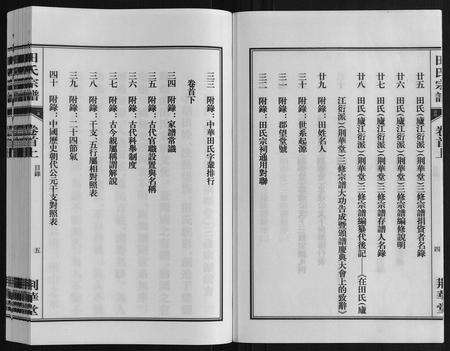 田氏宗譜
卷首上
四
廿五 田氏(廬江衍派)(荆華堂)三修宗譜捐資者名錄
廿六 田氏(廬江衍派)(荆華堂)三修宗譜編修說明
廿七 田氏(廬江衍派)(荆華堂)三修宗譜存譜人名錄
廿八 田氏(廬江衍派)(荆華堂)三修宗譜編纂代後記——(在田氏(廬
江衍派)(荆華堂)三修宗譜大功告成暨頒譜慶典大會上的致辭)
廿九 附錄:田姓名人
三十 附錄:世系起源
三一 附錄:郡望堂號
三二 附錄:田氏宗祠通用對聯
三三 附錄:中華田氏字輩排行
卷首下
三四 附錄:家譜常識
三五 附錄:古代官職設置與名稱
三六 附錄:古代科舉制度
三七 附錄:古今親屬稱謂解說
三八 附錄:干支、五行屬相對照表
三九 附錄:二十四節氣
四十 附錄:中國歷史朝代公元干支對照表
田氏宗譜
卷首上
目錄
五
荆華堂